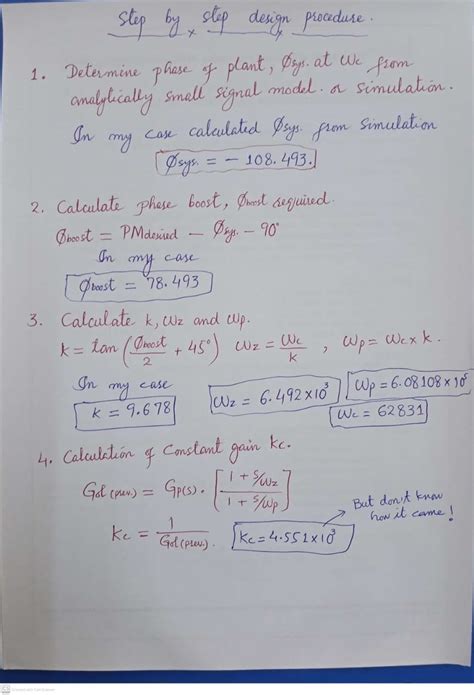 Step by step design procedure.
1. Determine phase of plant, Øsys. at ωc from
analytically small signal model. or simulation.
In my case calculated Øsys. from simulation
Øsys. = - 108.493.
2. Calculate phase boost, Øboost required.
Øboost = PMdesired - Øsys. - 90°
In my case
Øboost = 78.493
3. Calculate k, ωz and ωp.
k = tan (Øboost/2 + 45°) ωz = ωc/k , ωp = ωc x k.
In my case
k = 9.678
ωz = 6.492x10³
ωp = 6.08108x10⁵
ωc = 62831
4. Calculation of Constant gain kc.
Gol (prev.) = Gp(s). [1 + s/ωz / 1 + s/ωp]
kc = 1/Gol (prev.)
kc = 4.551x10³
But don't know
how it came!